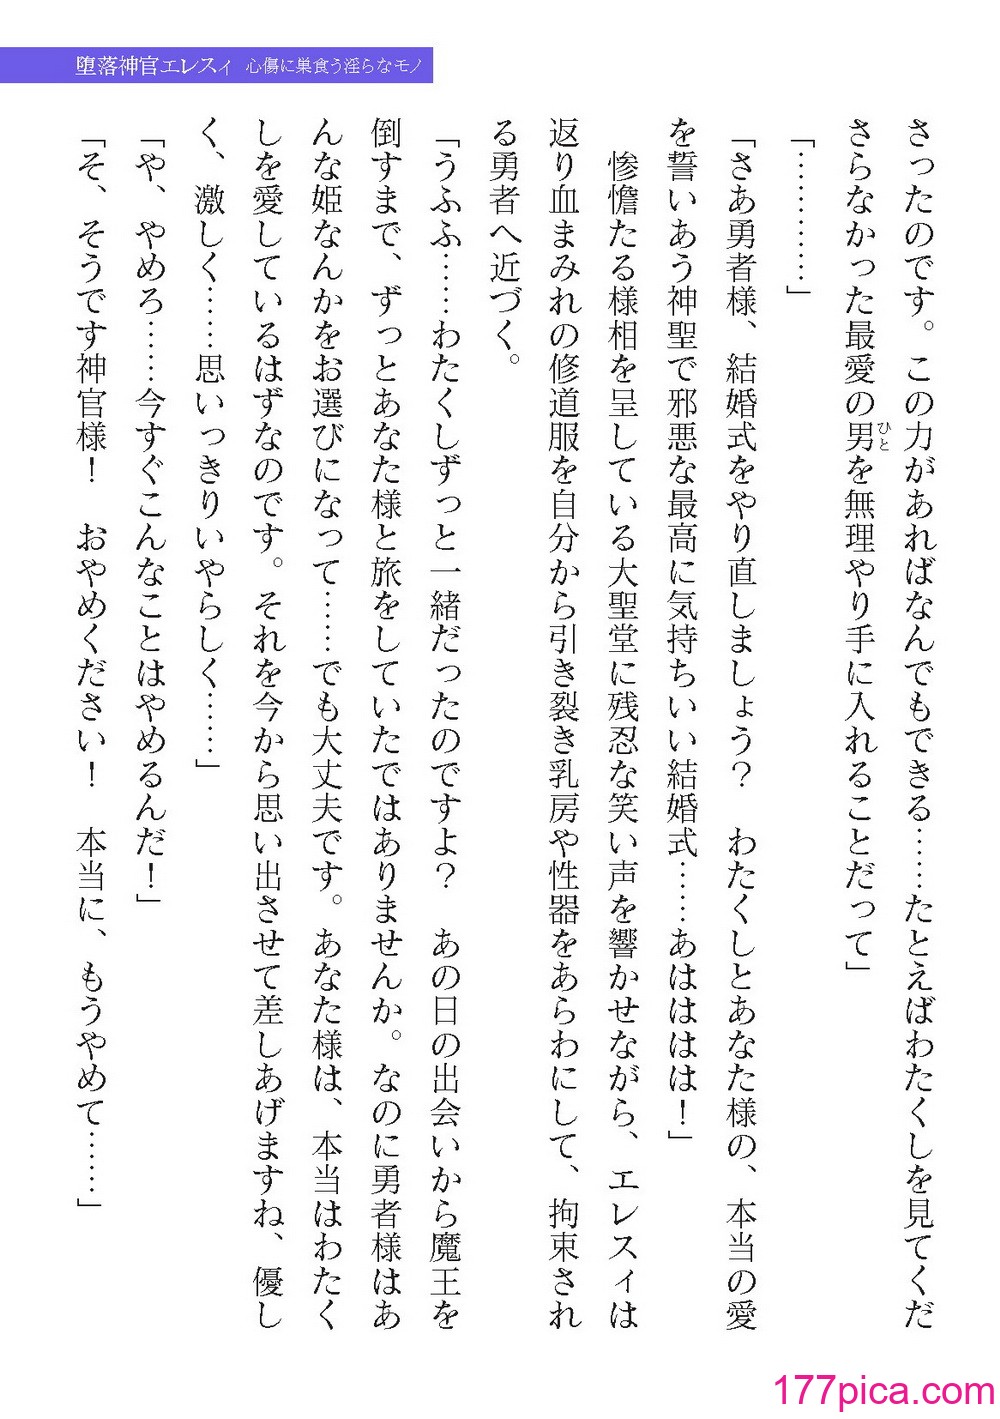 堕落神官エレスィ 心傷に巣食う淫らなモノ
さったのです。この力があればなんでもできる……たとえばわたくしを見てくだ
さらなかった最愛の男を無理やり手に入れることだって」
ひと
「…………」
「さあ勇者様、結婚式をやり直しましょう？　わたくしとあなた様の、本当の愛
を誓いあう神聖で邪悪な最高に気持ちいい結婚式……あはははは！」
　惨憺たる様相を呈している大聖堂に残忍な笑い声を響かせながら、エレスィは
返り血まみれの修道服を自分から引き裂き乳房や性器をあらわにして、拘束され
る勇者へ近づく。
「うふふ……わたくしずっと一緒だったのですよ？　あの日の出会いから魔王を
倒すまで、ずっとあなた様と旅をしていたではありませんか。なのに勇者様はあ
んな姫なんかをお選びになって……でも大丈夫です。あなた様は、本当はわたく
しを愛しているはずなのです。それを今から思い出させて差しあげますね、優し
く、激しく……思いっきりいやらしく……」
「や、やめろ……今すぐこんなことはやめるんだ！」
「そ、そうです神官様！　おやめください！　本当に、もうやめて……」
177pica.com